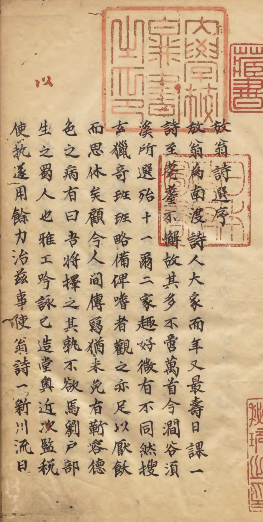 放翁詩選序
放翁爲南渡詩人大家而年又最壽日課一
詩至耄耋不懈故其多不啻萬首今澗谷須
溪所選殆十一爾二家趣好微有不同然搜
玄獵奇班班略備碑嚌者觀之亦足以厭飫
而思休矣顧今人間傳寫猶未免有靳容德
色之病有曰吾將擇之其孰不欲焉劉户部
生之蜀人也雅工吟詠已造堂奥近次監稅
使執遂用餘力治茲事使翁詩一新川流日